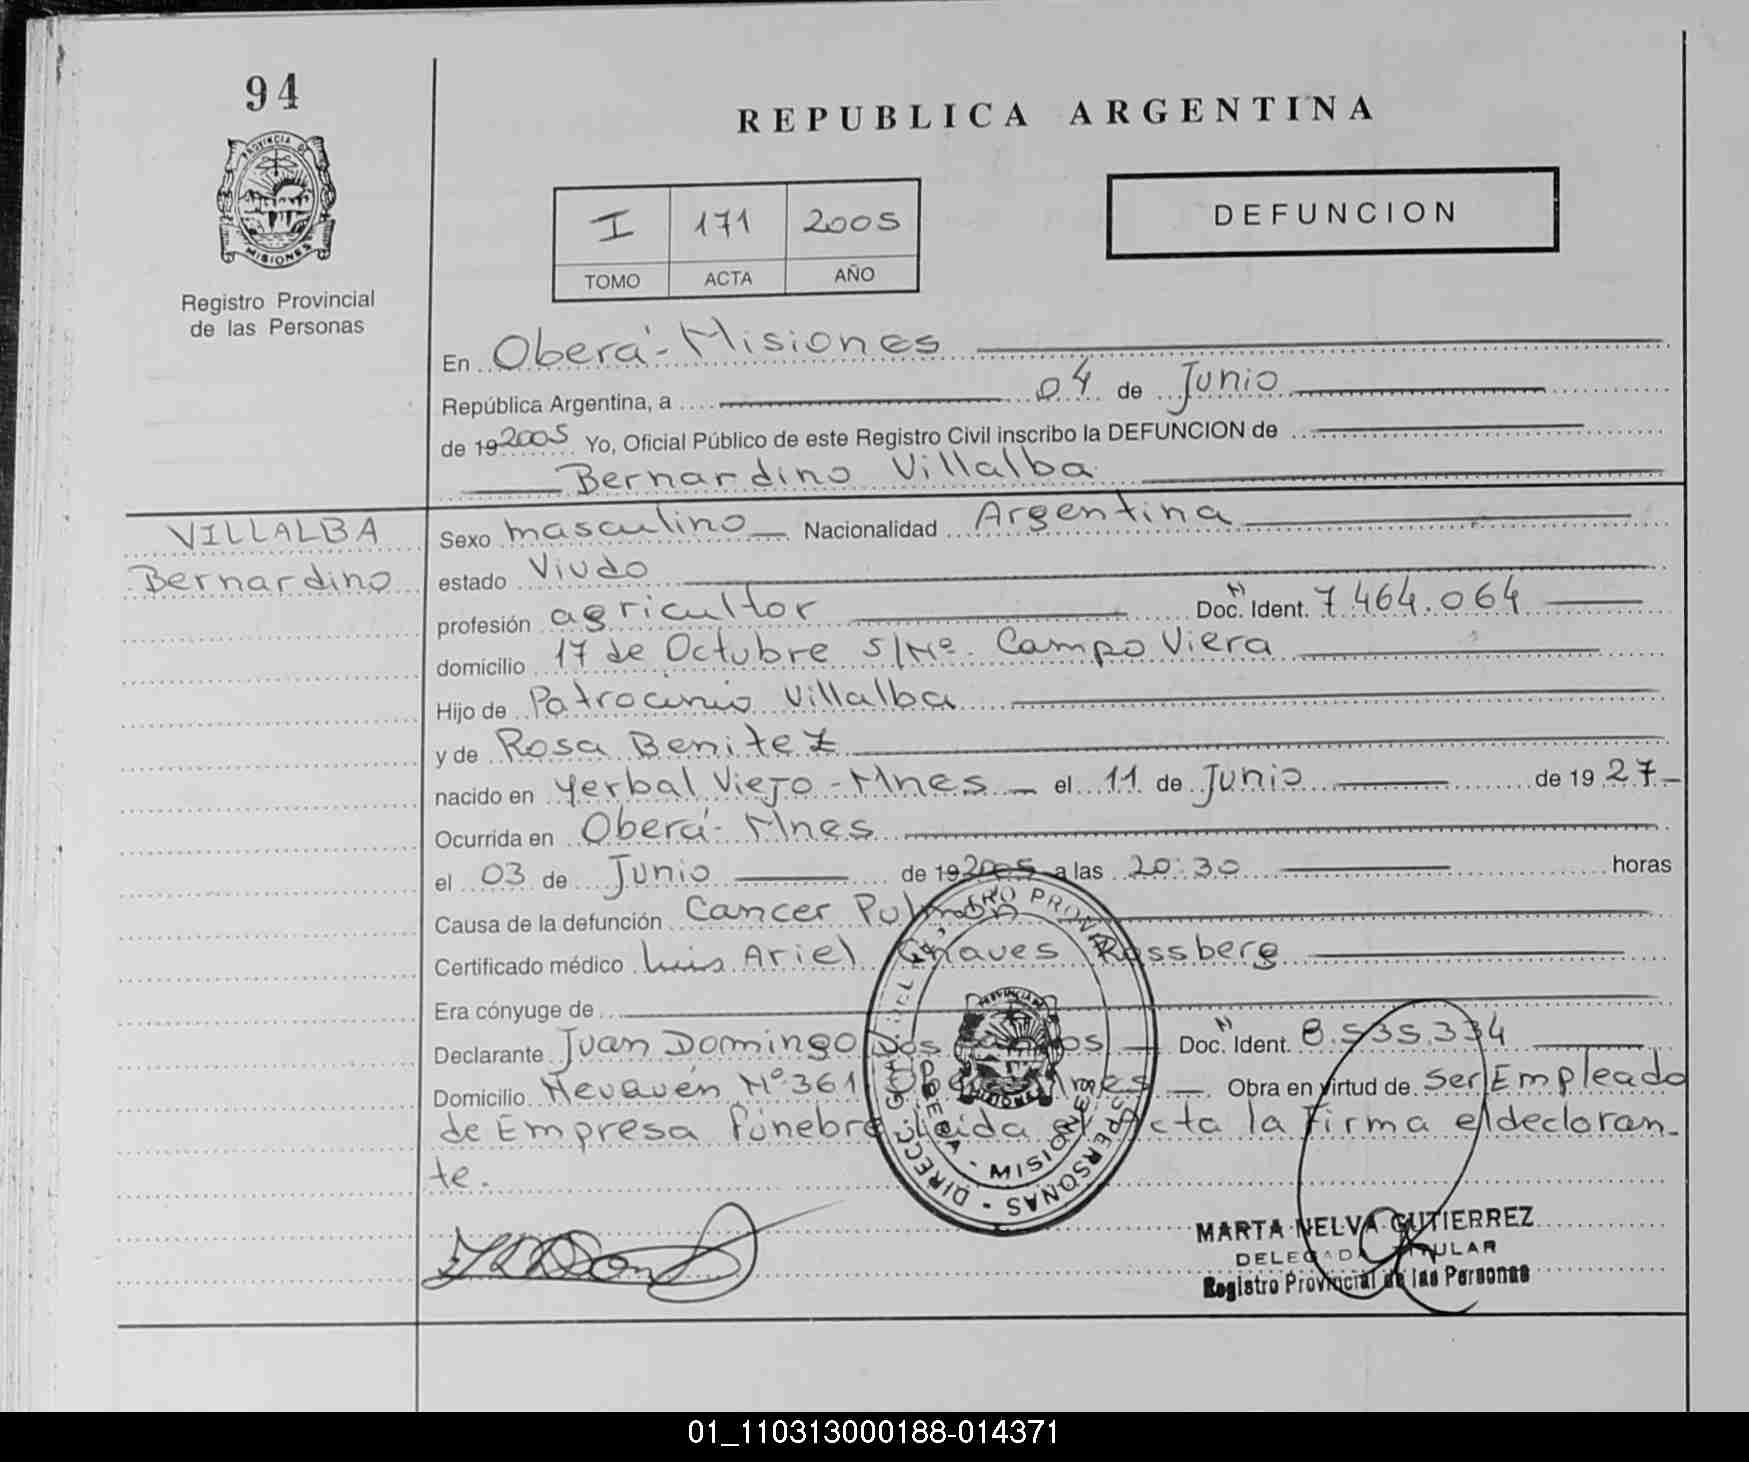 94
PROVINCIA DE
MISIONES
Registro Provincial
de las Personas
REPUBLICA ARGENTINA
I 171 2005
TOMO ACTA AÑO
DEFUNCION
En Oberá - Misiones
República Argentina, a 04 de Junio
de 19 2005 Yo, Oficial Público de este Registro Civil inscribo la DEFUNCION de
Bernardino Villalba
VILLALBA
Bernardino
Sexo masculino Nacionalidad Argentina
estado Viudo
profesión agricultor Doc. N Ident. 7.464.064
domicilio 17 de Octubre S/Nº. Campo Viera
Hijo de Patrocinio Villalba
y de Rosa Benitez
nacido en Yerbal Viejo - Mnes el 11 de Junio de 19 27
Ocurrida en Oberá - Mnes
el 03 de Junio de 19 2005 a las 20:30 horas
Causa de la defunción Cancer Pulmón
Certificado médico Luis Ariel Chaves Rossberg
Era cónyuge de
Declarante Juan Domingo Dos Santos Doc. N Ident. 8.535.334
Domicilio Neuquén Nº 361 Oberá Mnes Obra en virtud de Ser Empleado
de Empresa Fúnebre Leida el Acta la Firma el declaran-
te.
PROVINCIA DE
MISIONES
OBERA - MISIONES
PERSONAS - DIRECC. GRAL. DEL REGISTRO PROV.
MARTA NELVA GUTIERREZ
DELEGADA TITULAR
Registro Provincial de las Personas
01_110313000188-014371